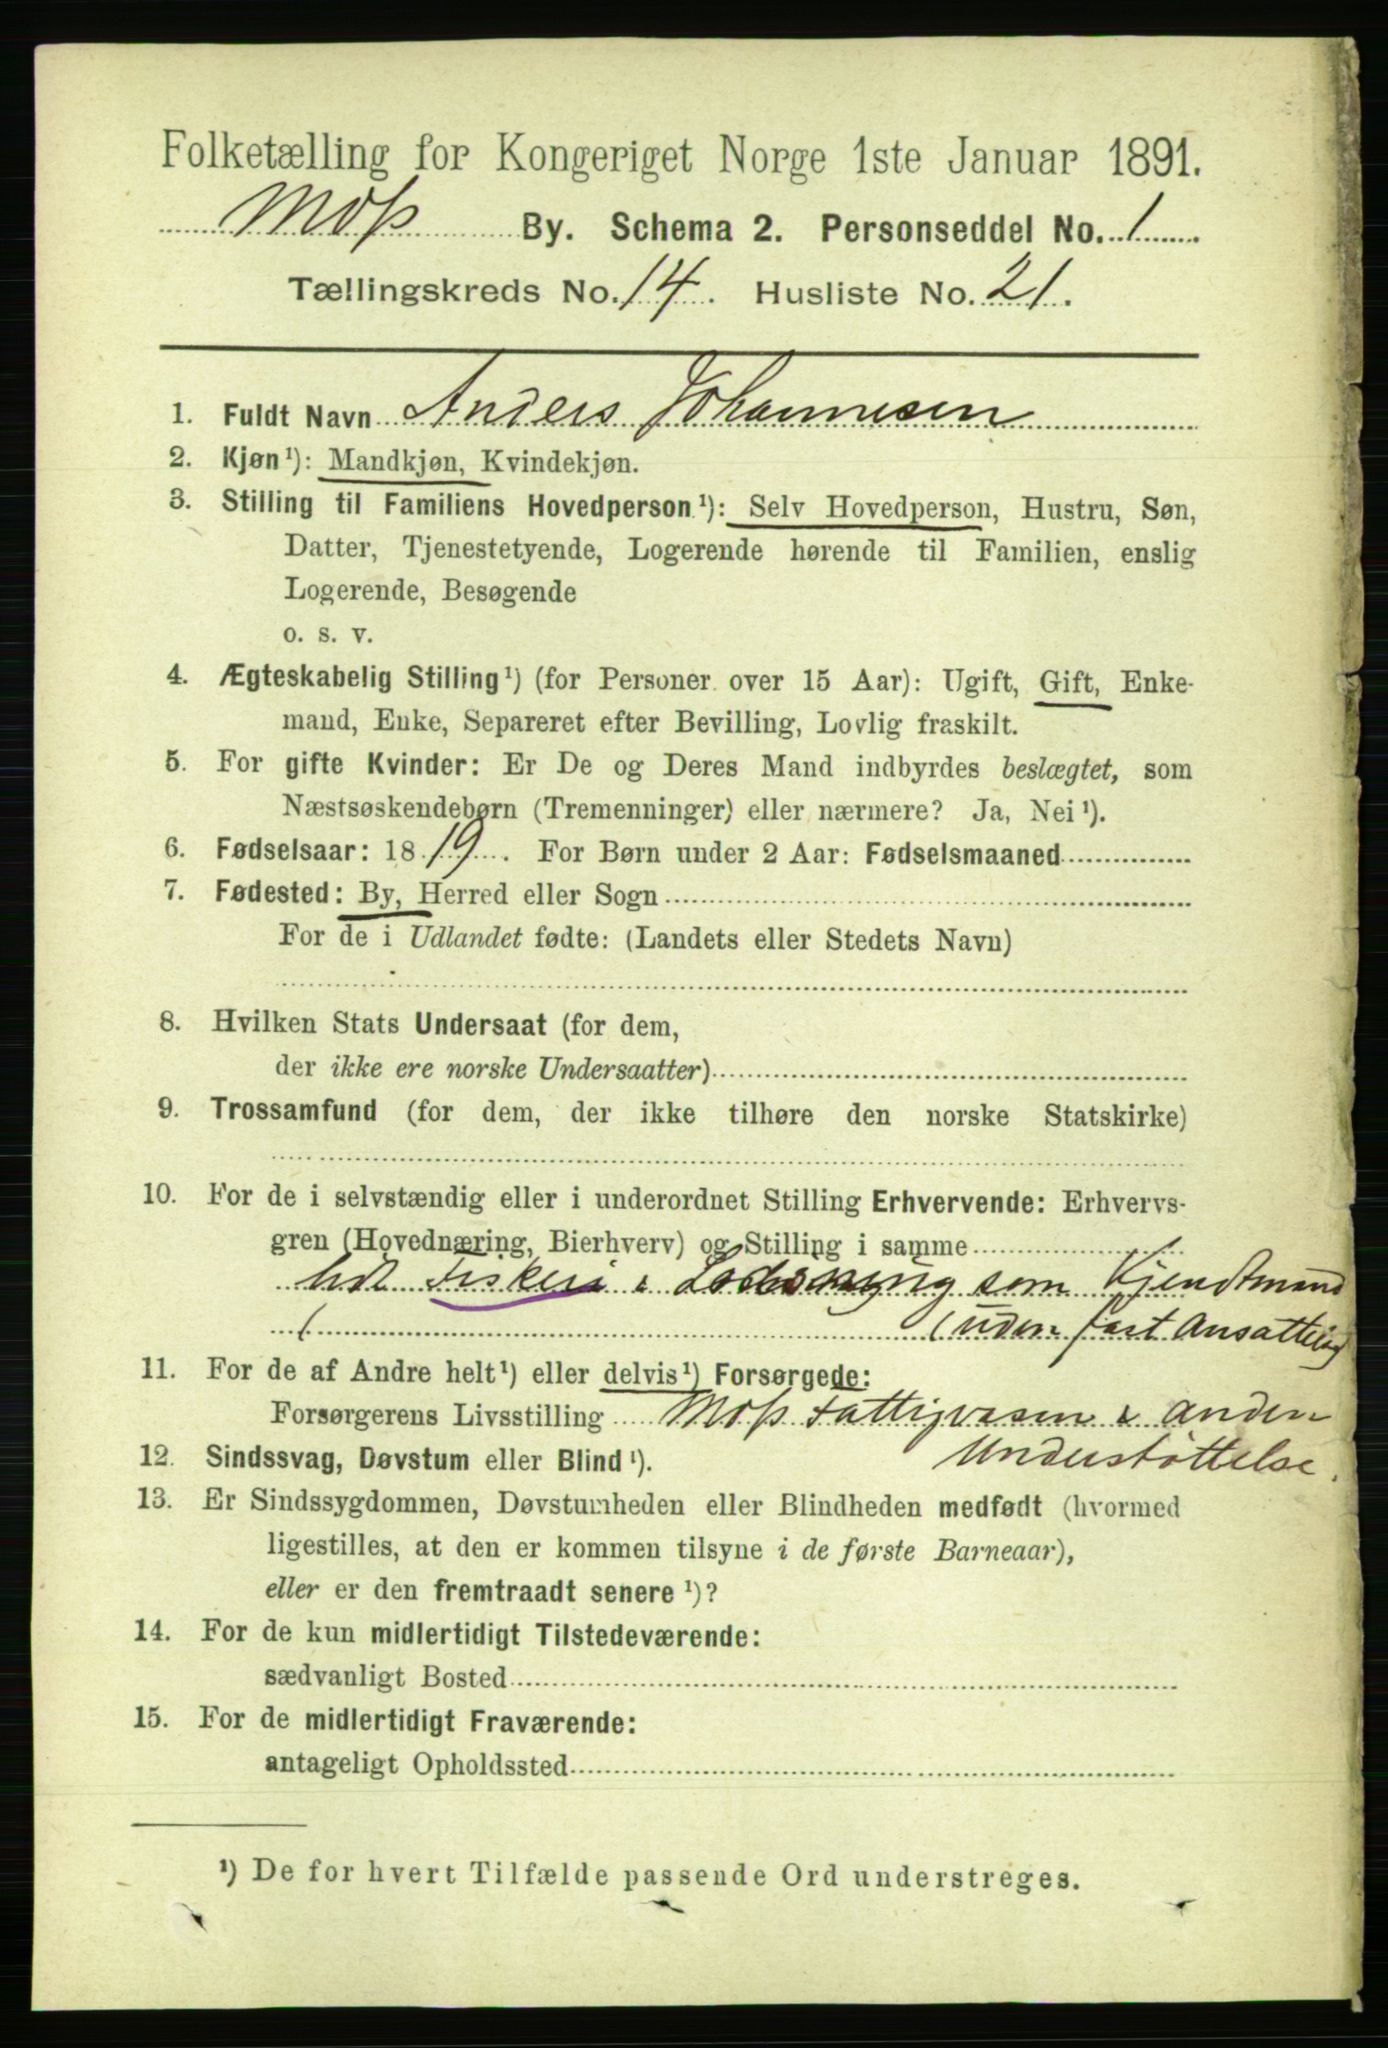 Folketælling for Kongeriget Norge 1ste Januar 1891.
Moss By. Schema 2. Personseddel No. 1
Tællingskreds No. 14. Husliste No. 21.
1. Fuldt Navn Anders Johannesen
2. Kjøn¹): Mandkjøn, Kvindekjøn.
3. Stilling til Familiens Hovedperson¹): Selv Hovedperson, Hustru, Søn,
Datter, Tjenestetyende, Logerende hørende til Familien, enslig
Logerende, Besøgende
o. s. v.
4. Ægteskabelig Stilling¹) (for Personer over 15 Aar): Ugift, Gift, Enke-
mand, Enke, Separeret efter Bevilling, Lovlig fraskilt.
5. For gifte Kvinder: Er De og Deres Mand indbyrdes beslægtet, som
Næstsøskendebørn (Tremenninger) eller nærmere? Ja, Nei¹).
6. Fødselsaar: 1819. For Børn under 2 Aar: Fødselsmaaned
7. Fødested: By, Herred eller Sogn
For de i Udlandet fødte: (Landets eller Stedets Navn)
8. Hvilken Stats Undersaat (for dem,
der ikke ere norske Undersaatter)
9. Trossamfund (for dem, der ikke tilhøre den norske Statskirke)
10. For de i selvstændig eller i underordnet Stilling Erhvervende: Erhvervs-
gren (Hovednæring, Bierhverv) og Stilling i samme
lidt Fiskeri & Lodsning som Kjendtmand
(uden fast Ansættelse
11. For de af Andre helt¹) eller delvis¹) Forsørgede:
Forsørgerens Livsstilling Moss Fattigvæsen & anden
Understøttelse.
12. Sindssvag, Døvstum eller Blind¹).
13. Er Sindssygdommen, Døvstumheden eller Blindheden medfødt (hvormed
ligestilles, at den er kommen tilsyne i de første Barneaar),
eller er den fremtraadt senere¹)?
14. For de kun midlertidigt Tilstedeværende:
sædvanligt Bosted
15. For de midlertidigt Fraværende:
antageligt Opholdssted
¹) De for hvert Tilfælde passende Ord understreges.